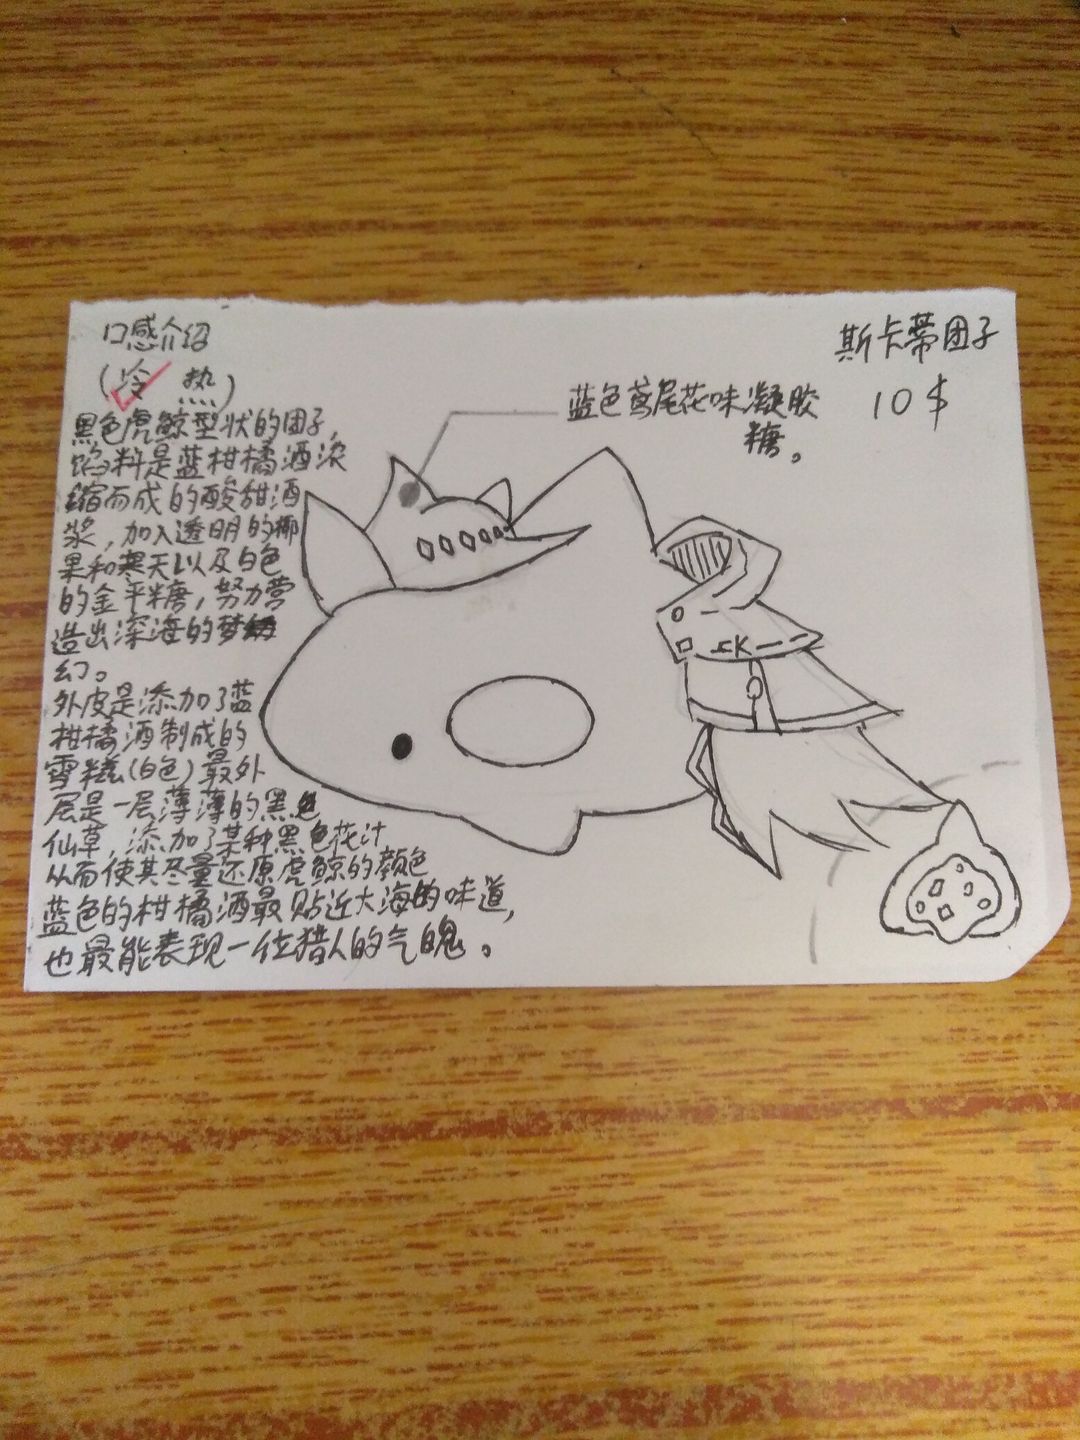 口感介绍
(冷 热)
黑色虎鲸型状的团子,
馅料是蓝柑橘酒浓
缩而成的酸甜酒
浆,加入透明的椰
果和寒天以及白色
的金平糖,努力营
造出深海的梦
幻。
外皮是添加了蓝
柑橘酒制成的
雪糍(白色)最外
层是一层薄薄的黑色
仙草,添加了某种黑色花汁
从而使其尽量还原虎鲸的颜色
蓝色的柑橘酒最贴近大海的味道,
也最能表现一位猎人的气魄。
蓝色鸢尾花味凝胶
糖。
斯卡蒂团子
10$
SK